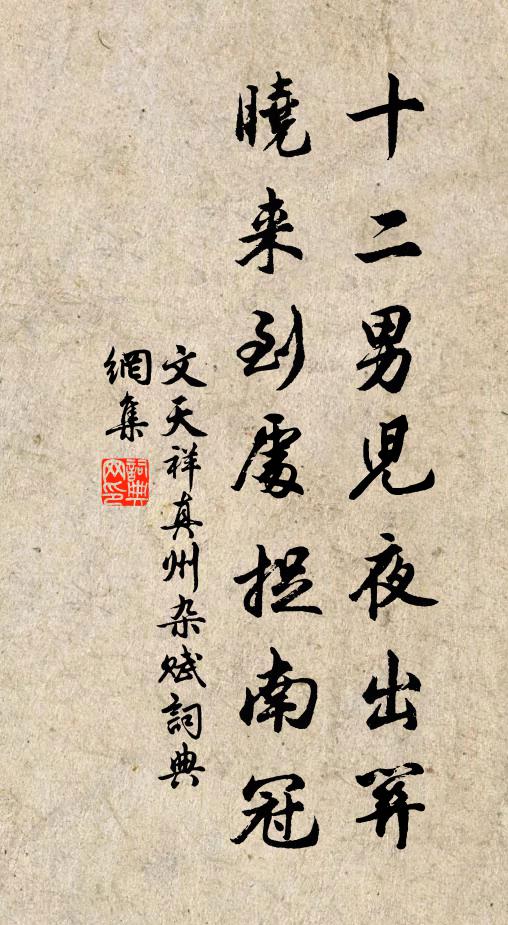 十二男児夜出関
曉来到處捉南冠
文天祥真州杂赋詞典
網集
詞典網印